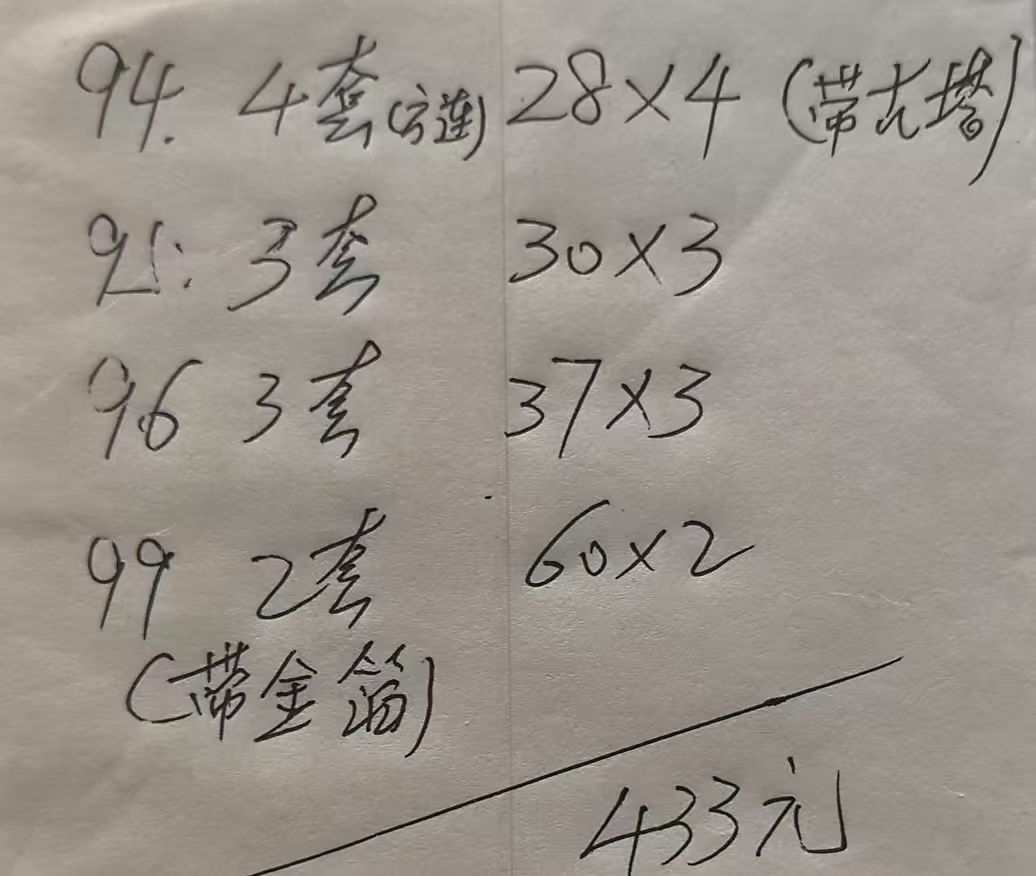 94. 4套(方连) 28×4 (带古塔)
95: 3套 30×3
96 3套 37×3
99 2套 60×2
(带金箔)
433元